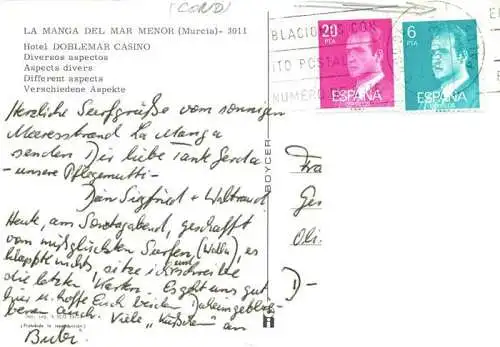 (CORD)
LA MANGA DEL MAR MENOR (Murcia)- 3011
Hotel DOBLEMAR CASINO
Diversos aspectos
Aspects divers
Different aspects
Verschiedene Aspekte
20 PTA
ESPAÑA
6 PTA
ESPAÑA
BLACION CON
ITO POSTAL
NUMERO
Herzliche Surfgrüße vom sonnigen
Meeresstrand La Manga
senden Dir liebe Tante Gerda
- unsere Pflegemutti -
Dein Siegfried + Waltraud
Heute, am Sonntagabend, geschafft
vom mißglückten Surfen, (Wellen), es
klappte nichts, sitze ich und schreibe
die letzten Karten. Es geht uns gut
hier u. hoffe Euch beiden Daheimgeblie-
benen auch. Viele "Küßchen" an
BOYCER
Fra
Ges
D-